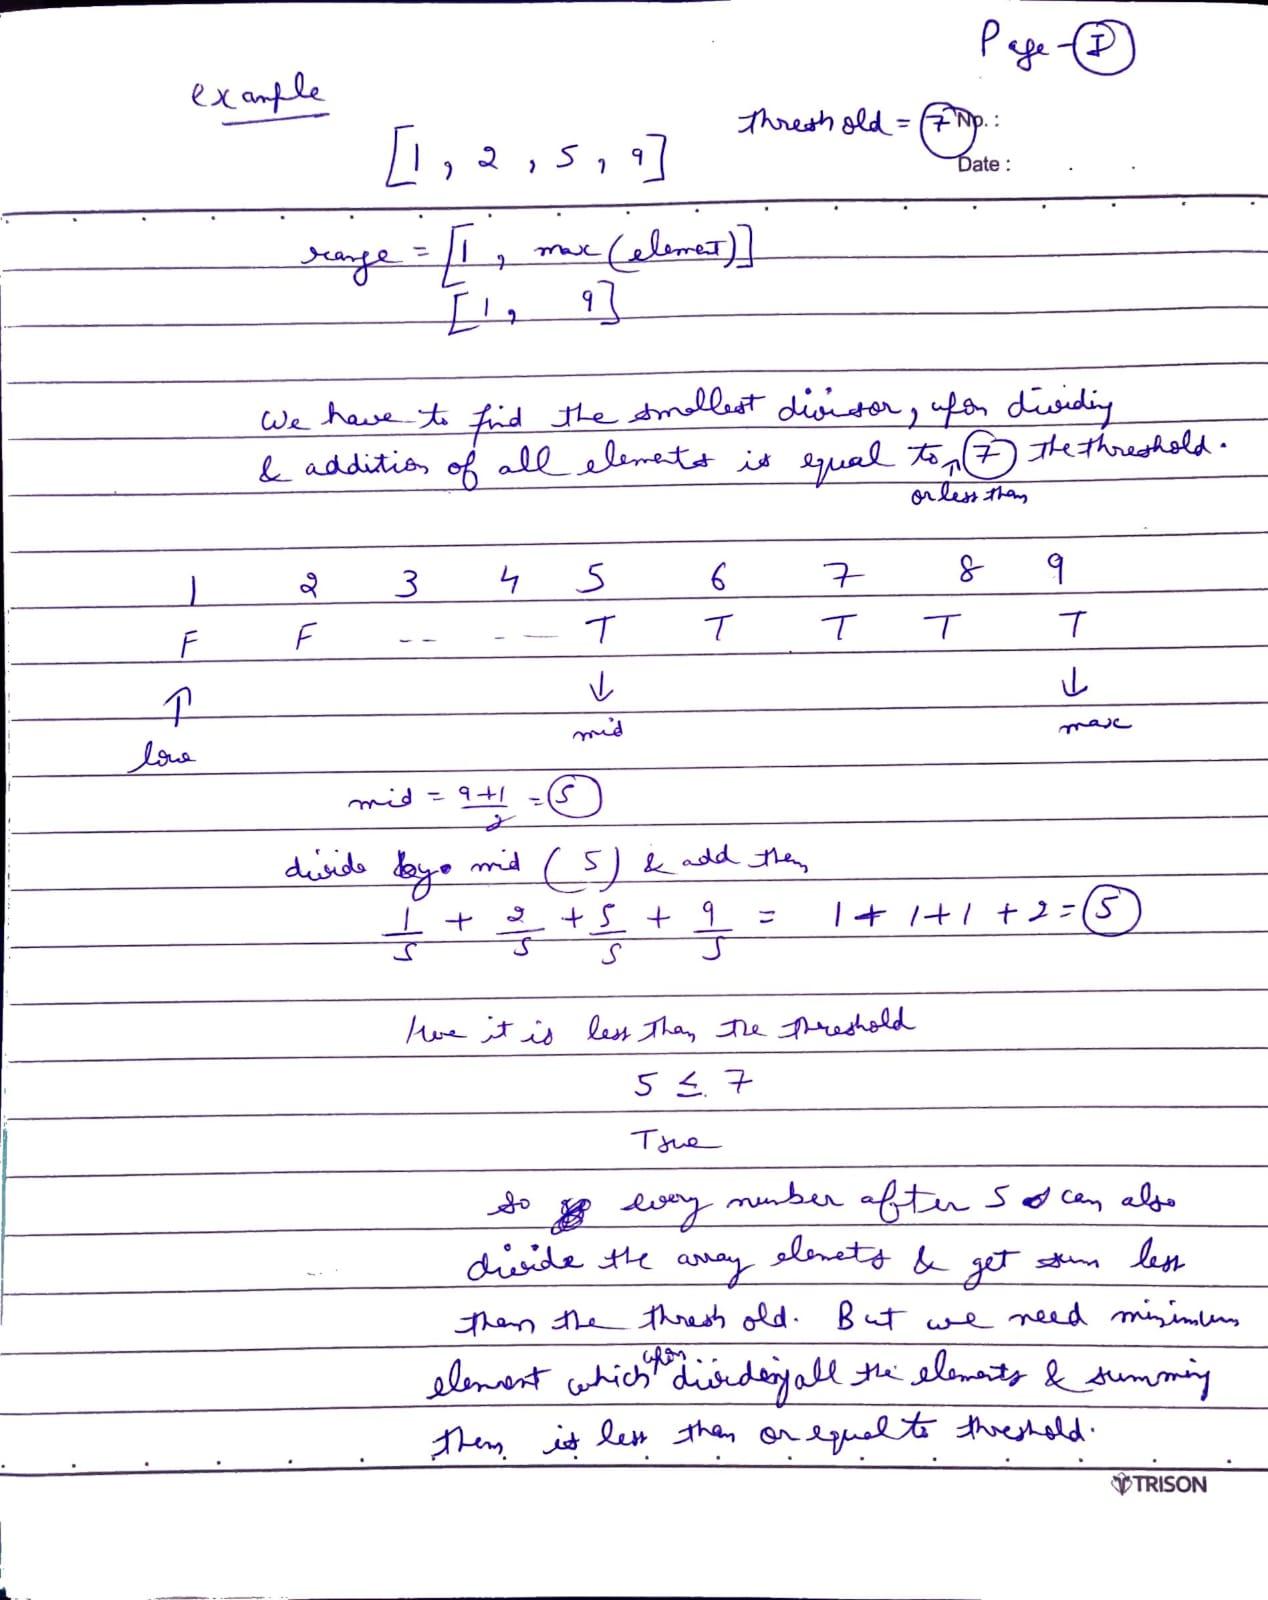 Page - I
example
threshold = 7 No. :
[1, 2, 5, 9]
Date :
range = [1, max (element)]
[1, 9]
We have to find the smallest divisor, upon dividing
& addition of all elements is equal to 7 the threshold.
or less than
1 2 3 4 5 6 7 8 9
F F -- -- T T T T T
↑ ↓ ↓
low mid max
mid = 9+1/2 = 5
divide by mid (5) & add them
1/5 + 2/5 + 5/5 + 9/5 = 1 + 1 + 1 + 2 = 5
here it is less than the threshold
5 ≤ 7
True
So every number after 5 can also
divide the array elemets & get sum less
than the threshold. But we need minimum
element which upon dividing all the elements & summing
them is less than or equal to threshold.
TRISON